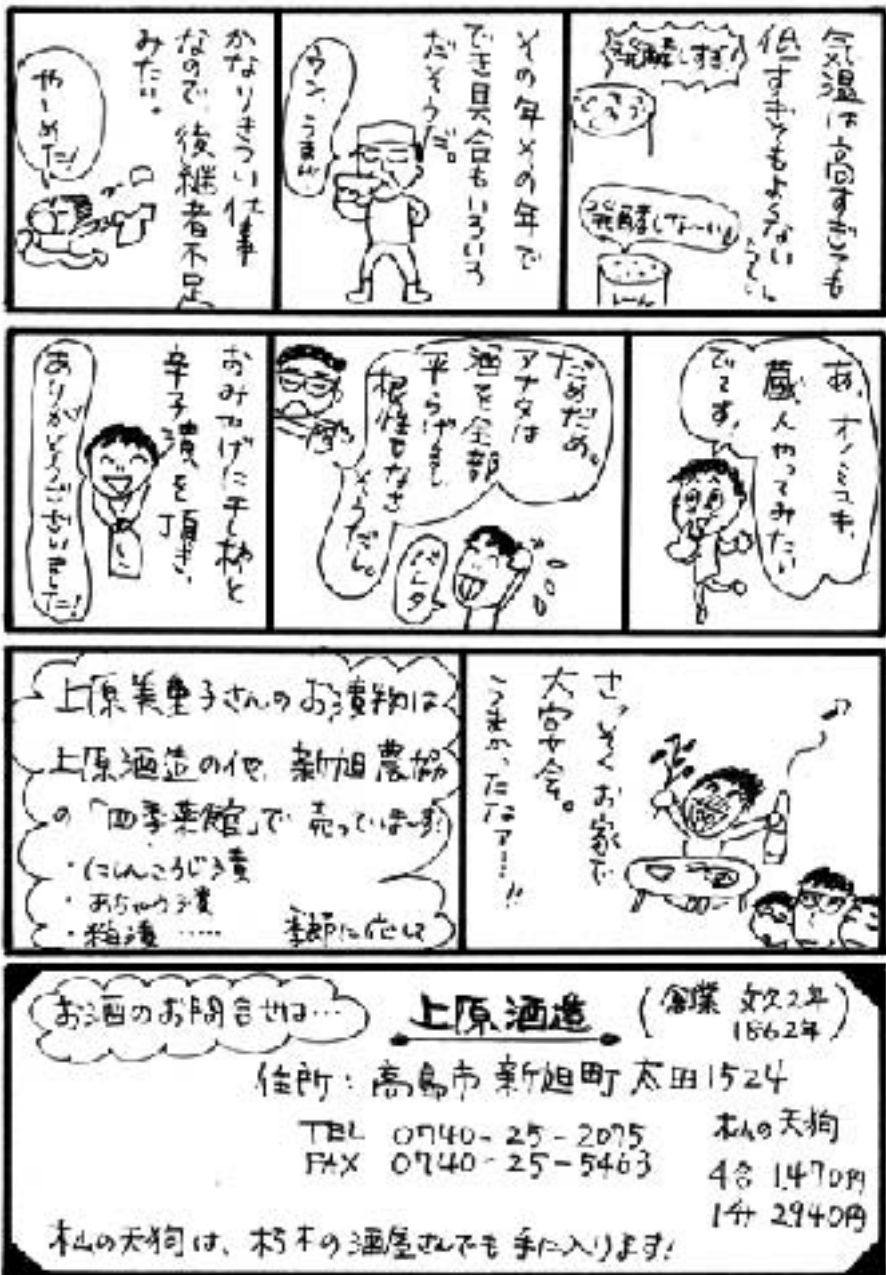 気温は高すぎても
低すぎてもよくない
らしい。
発酵しすぎ!
発酵しな〜い!
その年その年で
でき具合もいろいろ
だそうだ。
ウン、うまい!
かなりきつい仕事
なので、後継者不足
みたい。
や〜めた!
あ、オノミユキ、
蔵人やってみたい
でーす!
だめだめ。
アナタは
酒を全部
平らげるし
根性もなさ
そうだし。
バレタ
おみやげに干し柿と
辛子漬を頂き、
ありがとうございました!
さっそくお家で
大宴会。
うまかったなァ…!!
上原美重子さんのお漬物は
上原酒造の他、新旭農協
の「四季菜館」で売っていまーす!
・にしんこうじ漬
・あちゃら漬
・粕漬 ……季節に応じて
お酒のお問合せは…
上原酒造
(創業 文久2年
1862年)
住所:高島市新旭町太田1524
TEL 0740-25-2075
FAX 0740-25-5463
杣の天狗
4合 1,470円
1升 2940円
杣の天狗は、朽木の酒屋さんでも手に入ります!